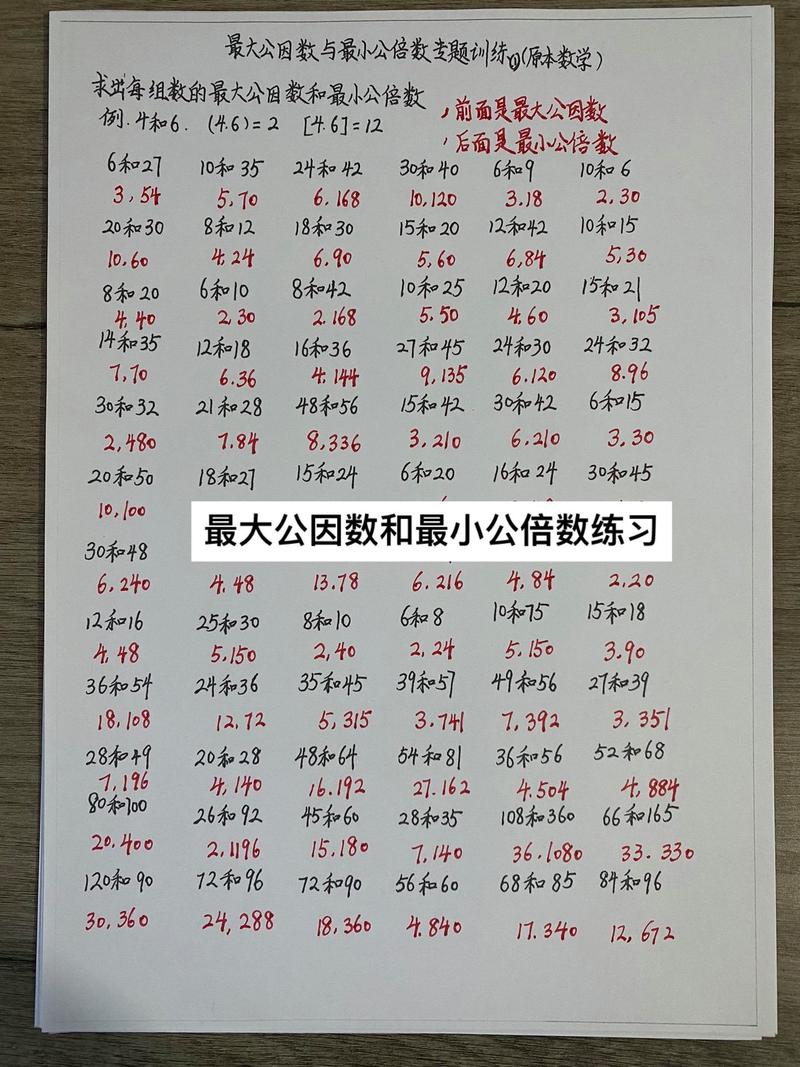 最大公因数与最小公倍数专题训练①(原本数学)
求出每组数的最大公因数和最小公倍数
例.4和6. (4.6)=2 [4.6]=12
,前面是最大公因数
,后面是最小公倍数
6和27 10和35 24和42 30和40 6和9 10和6
3,54 5,70 6.168 10,120 3.18 2,30
20和30 8和12 18和30 15和20 12和42 10和15
10.60 4,24 6.90 5,60 6,84 5,30
8和20 6和10 8和42 10和25 12和20 15和21
4,40 2,30 2.168 5.50 4.60 3,105
14和35 12和18 16和36 27和45 24和30 24和32
7,70 6.36 4,144 9,135 6.120 8.96
30和32 21和28 48和56 15和42 30和42 6和15
2,480 7.84 8,336 3,210 6,210 3,30
20和50 18和27 15和24 6和20 16和24 30和45
10,100
最大公因数和最小公倍数练习
30和48
6,240 4.48 13.78 6.216 4,84 2,20
12和16 25和30 8和10 6和8 10和75 15和18
4,48 5.150 2,40 2,24 5.150 3.90
36和54 24和36 35和45 39和57 49和56 27和39
18,108 12,72 5,315 3.741 7,392 3,351
28和49 20和28 48和64 54和81 36和56 52和68
7,196 4,140 16.192 27.162 4.504 4,884
80和100 26和92 45和60 28和35 108和360 66和165
20.400 2,1196 15,180 7,140 36.1080 33.330
120和90 72和96 72和90 56和60 68和85 84和96
30,360 24,288 18,360 4.840 17.340 12,672